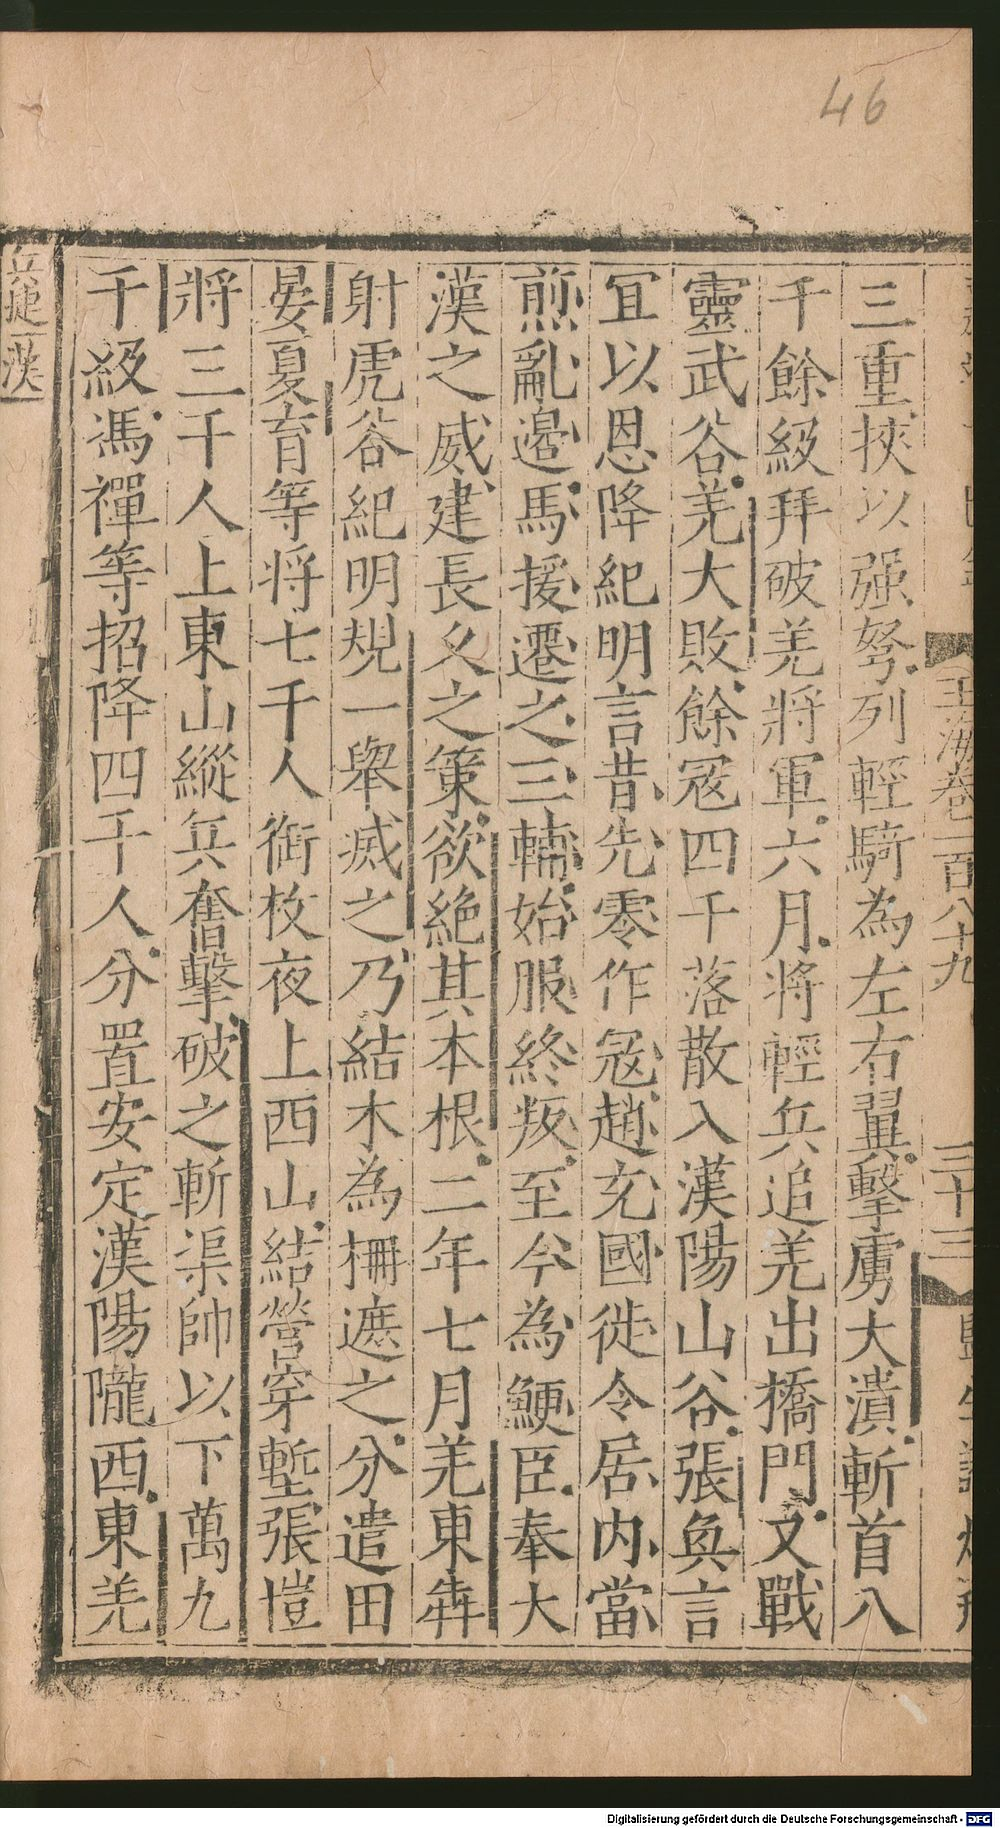 46
玉海卷一百八十九
三十三
三重挾以强弩列輕騎為左右翼擊虜大潰斬首八
千餘級拜破羌將軍六月將輕兵追羌出橋門又戰
靈武谷羌大敗餘寇四千落散入漢陽山谷張奐言
冝以恩降紀明言昔先零作寇趙充國徙令居内當
煎亂邉馬援遷之三輔始服終叛至今為鯁臣奉大
漢之威建長久之策欲絶其本根二年七月羌東犇
射虎谷紀明規一舉烕之乃結木為柵遮之分遣田
晏夏育等将七千人銜枚夜上西山結營穿塹張愷
將三千人上東山縱兵奮擊破之斬渠帥以下萬九
千級馮禪等招降四千人分置安定漢陽隴西東羌
兵捷 漢
Digitalisierung gefördert durch die Deutsche Forschungsgemeinschaft - DFG